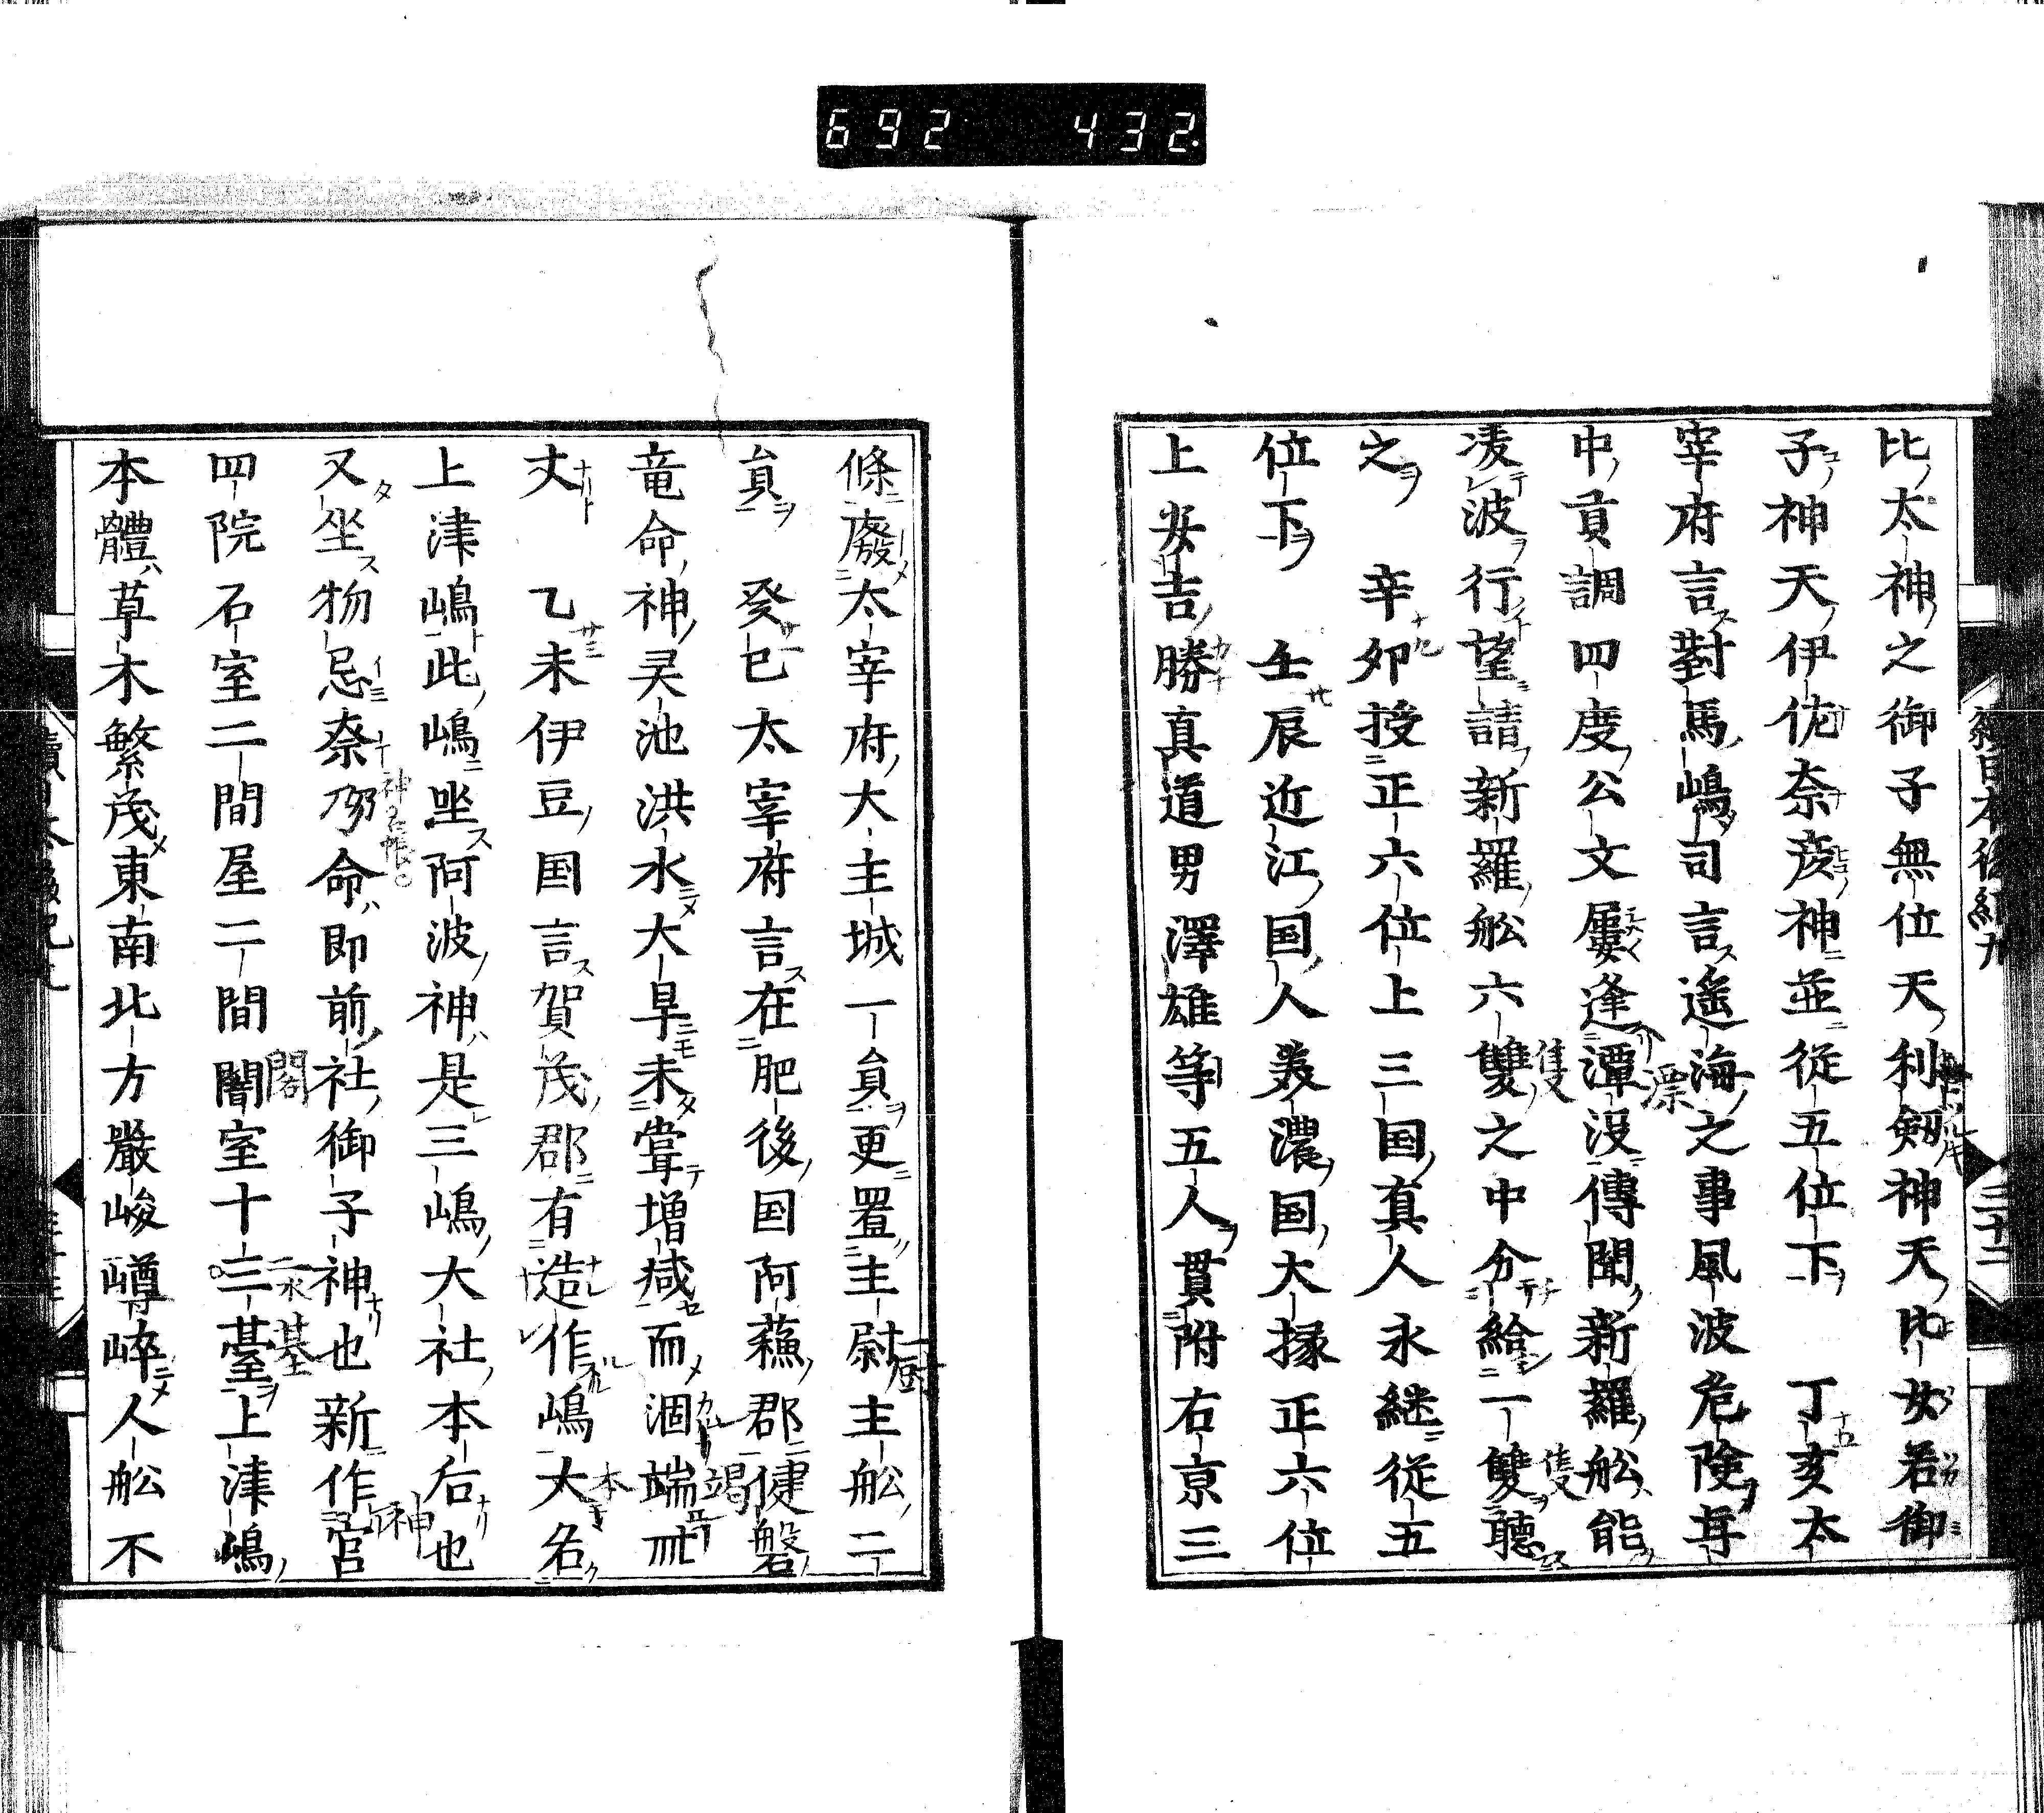 692 432
比太神之御子無位天利劔神天比女若御
子神天伊佐奈彦神並從五位下 丁亥太
宰府言對馬嶋司言遥海之事風波危険年
中貢調四度公文屢逢潭没傳聞新羅舩能
凌波行望請新羅舩六雙之中分給一雙聴
之 辛卯授正六位上三国真人永継從五
位下 壬辰近江国人美濃国大掾正六位
上安吉勝真道男澤雄等五人貫附右京三
條廢太宰府大主城一貟更置主尉主舩二
貟 癸巳太宰府言在肥後国阿蘓郡健磐
竜命神灵池洪水大旱未甞増减而涸端卌
丈 乙未伊豆国言賀茂郡有造作嶋大名
上津嶋此嶋坐阿波神是三嶋大社本后也
又坐物忌奈乃命即前社御子神也新作宮
四院石室二間屋二間闇室十三䑓上津嶋
本體草木繁茂東南北方嚴峻嶟崪人舩不